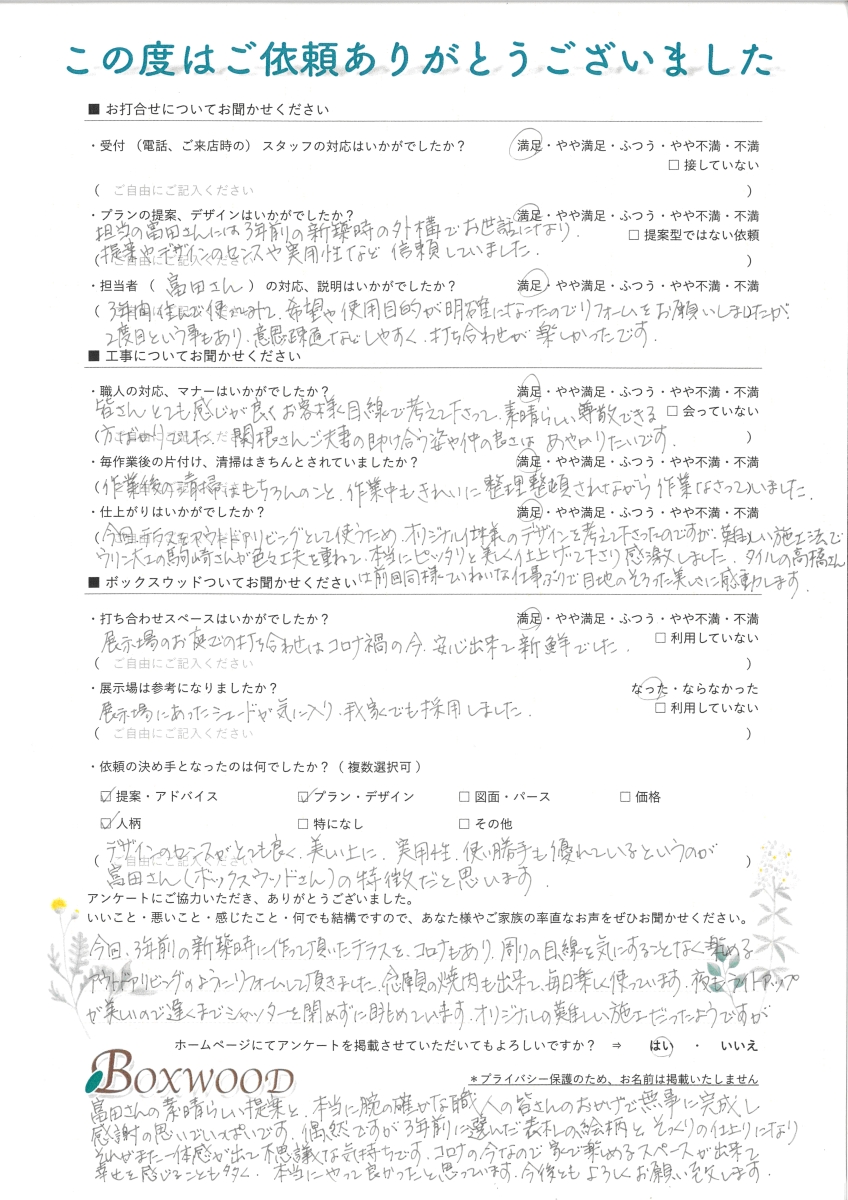 この度はご依頼ありがとうございました
■ お打合せについてお聞かせください
・受付 （電話、ご来店時の） スタッフの対応はいかがでしたか？ 満足・やや満足・ふつう・やや不満・不満
□ 接していない
（ ご自由にご記入ください ）
・プランの提案、デザインはいかがでしたか？ 満足・やや満足・ふつう・やや不満・不満
担当の富田さんには3年前の新築時の外構でお世話になり、 □ 提案型ではない依頼
提案やデザインのセンスや実用性など信頼していました.
（ ご自由にご記入ください ）
・担当者 （ 富田さん ） の対応、説明はいかがでしたか？ 満足・やや満足・ふつう・やや不満・不満
（ 3年間住んで使ってみて、希望や使用目的が明確になったのでリフォームをお願いしましたが、
2度目という事もあり、意思疎通などしやすく、打ち合わせが楽しかったです.
■ 工事についてお聞かせください
・職人の対応、マナーはいかがでしたか？ 満足・やや満足・ふつう・やや不満・不満
皆さんとても感じが良くお客様目線で考えて下さって、素晴らしい尊敬できる □ 会っていない
（ 方ばかりでした. 関根さんご夫妻の助け合う姿や仲の良さは あやかりたいです. ）
・毎作業後の片付け、清掃はきちんとされていましたか？ 満足・やや満足・ふつう・やや不満・不満
（ 作業後の清掃はもちろんのこと、作業中もきれいに整理整頓されながら作業なさっていました.
・仕上がりはいかがでしたか？ 満足・やや満足・ふつう・やや不満・不満
（ 今回テラスをアウトドアリビングとして使うため、オリジナル仕様のデザインを考えて下さったのですが、難しい施工法で
ウリン大工の駒崎さんが色々工夫を重ねて、本当にピッタリと美しく仕上げて下さり感激しました. タイルの高橋さん
■ ボックスウッドついてお聞かせください は前回同様ていねいな仕事ぶりで目地のそろった美しさに感動します.
・打ち合わせスペースはいかがでしたか？ 満足・やや満足・ふつう・やや不満・不満
展示場のお庭での打ち合わせはコロナ禍の今、安心出来て新鮮でした. □ 利用していない
（ ご自由にご記入ください ）
・展示場は参考になりましたか？ なった・ならなかった
展示場にあったシェードが気に入り、我家でも採用しました. □ 利用していない
（ ご自由にご記入ください ）
・依頼の決め手となったのは何でしたか？（ 複数選択可 ）
☑ 提案・アドバイス ☑ プラン・デザイン □ 図面・パース □ 価格
☑ 人柄 □ 特になし □ その他
デザインのセンスがとても良く、美しい上に、実用性、使い勝手も優れているというのが
（ ご自由にご記入ください ）
富田さん（ボックスウッドさん）の特徴だと思います.
アンケートにご協力いただき、ありがとうございました。
いいこと・悪いこと・感じたこと・何でも結構ですので、あなた様やご家族の率直なお声をぜひお聞かせください。
今回、3年前の新築時に作って頂いたテラスを、コロナもあり、周りの目線を気にすることなく楽める
アウトドアリビングのようにリフォームして頂きました. 念願の焼肉も出来て、毎日楽しく使っています. 夜もライトアップ
が美しいので遅くまでシャッターを閉めずに眺めています. オリジナルの難しい施工だったようですが
ホームページにてアンケートを掲載させていただいてもよろしいですか？ ⇒ はい ・ いいえ
BOXWOOD
＊プライバシー保護のため、お名前は掲載いたしません
富田さんの素晴らしい提案と、本当に腕の確かな職人の皆さんのおかげで無事に完成し
感謝の思いでいっぱいです. 偶然ですが3年前に選んだ表札の絵柄とそっくりの仕上りになり
それがまた一体感が出て不思議な気持ちです. コロナの今なので家で楽めるスペースが出来て
幸せを感じることも多く、本当にやって良かったと思っています. 今後ともよろしくお願い致します.